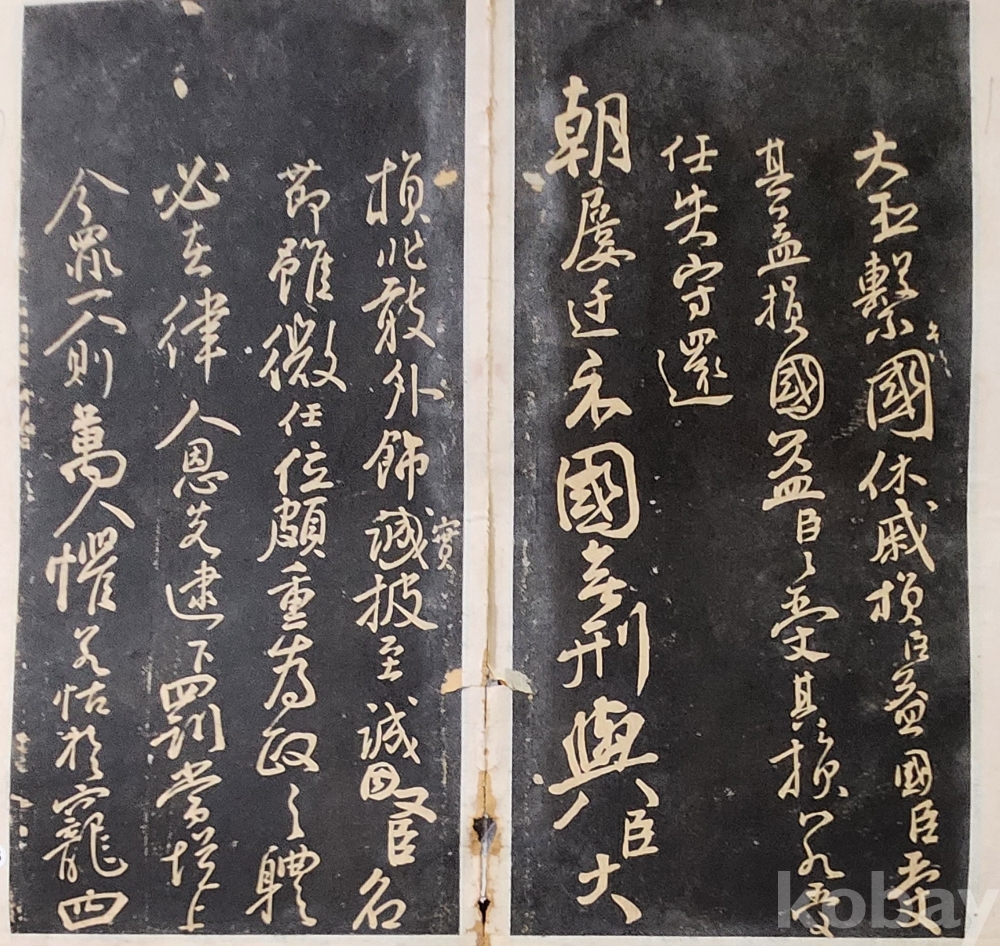 大臣繫國休戚損臣益國臣受
其益損國益臣臣受其損若受
任失守還
朝屢迁示國無刑與臣大
損非敢外飾誠披至誠因臣名
實
節雖微任位頗重為政之體
必在律人恩先逮下罰當從上
今罪一人則萬人懼若怙於寵四
kobay